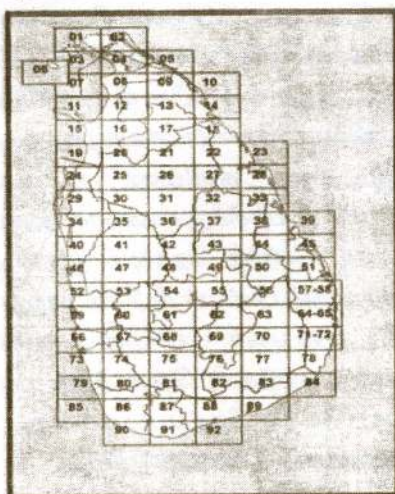 01 02
03 04 05
06
07 08 09 10
11 12 13 14
15 16 17 18
19 20 21 22 23
24 25 26 27 28
29 30 31 32 33
34 35 36 37 38 39
40 41 42 43 44 45
46 47 48 49 50 51
52 53 54 55 56 57-58
59 60 61 62 63 64-65
66 67 68 69 70 71-72
73 74 75 76 77 78
79 80 81 82 83 84
85 86 87 88 89
90 91 92